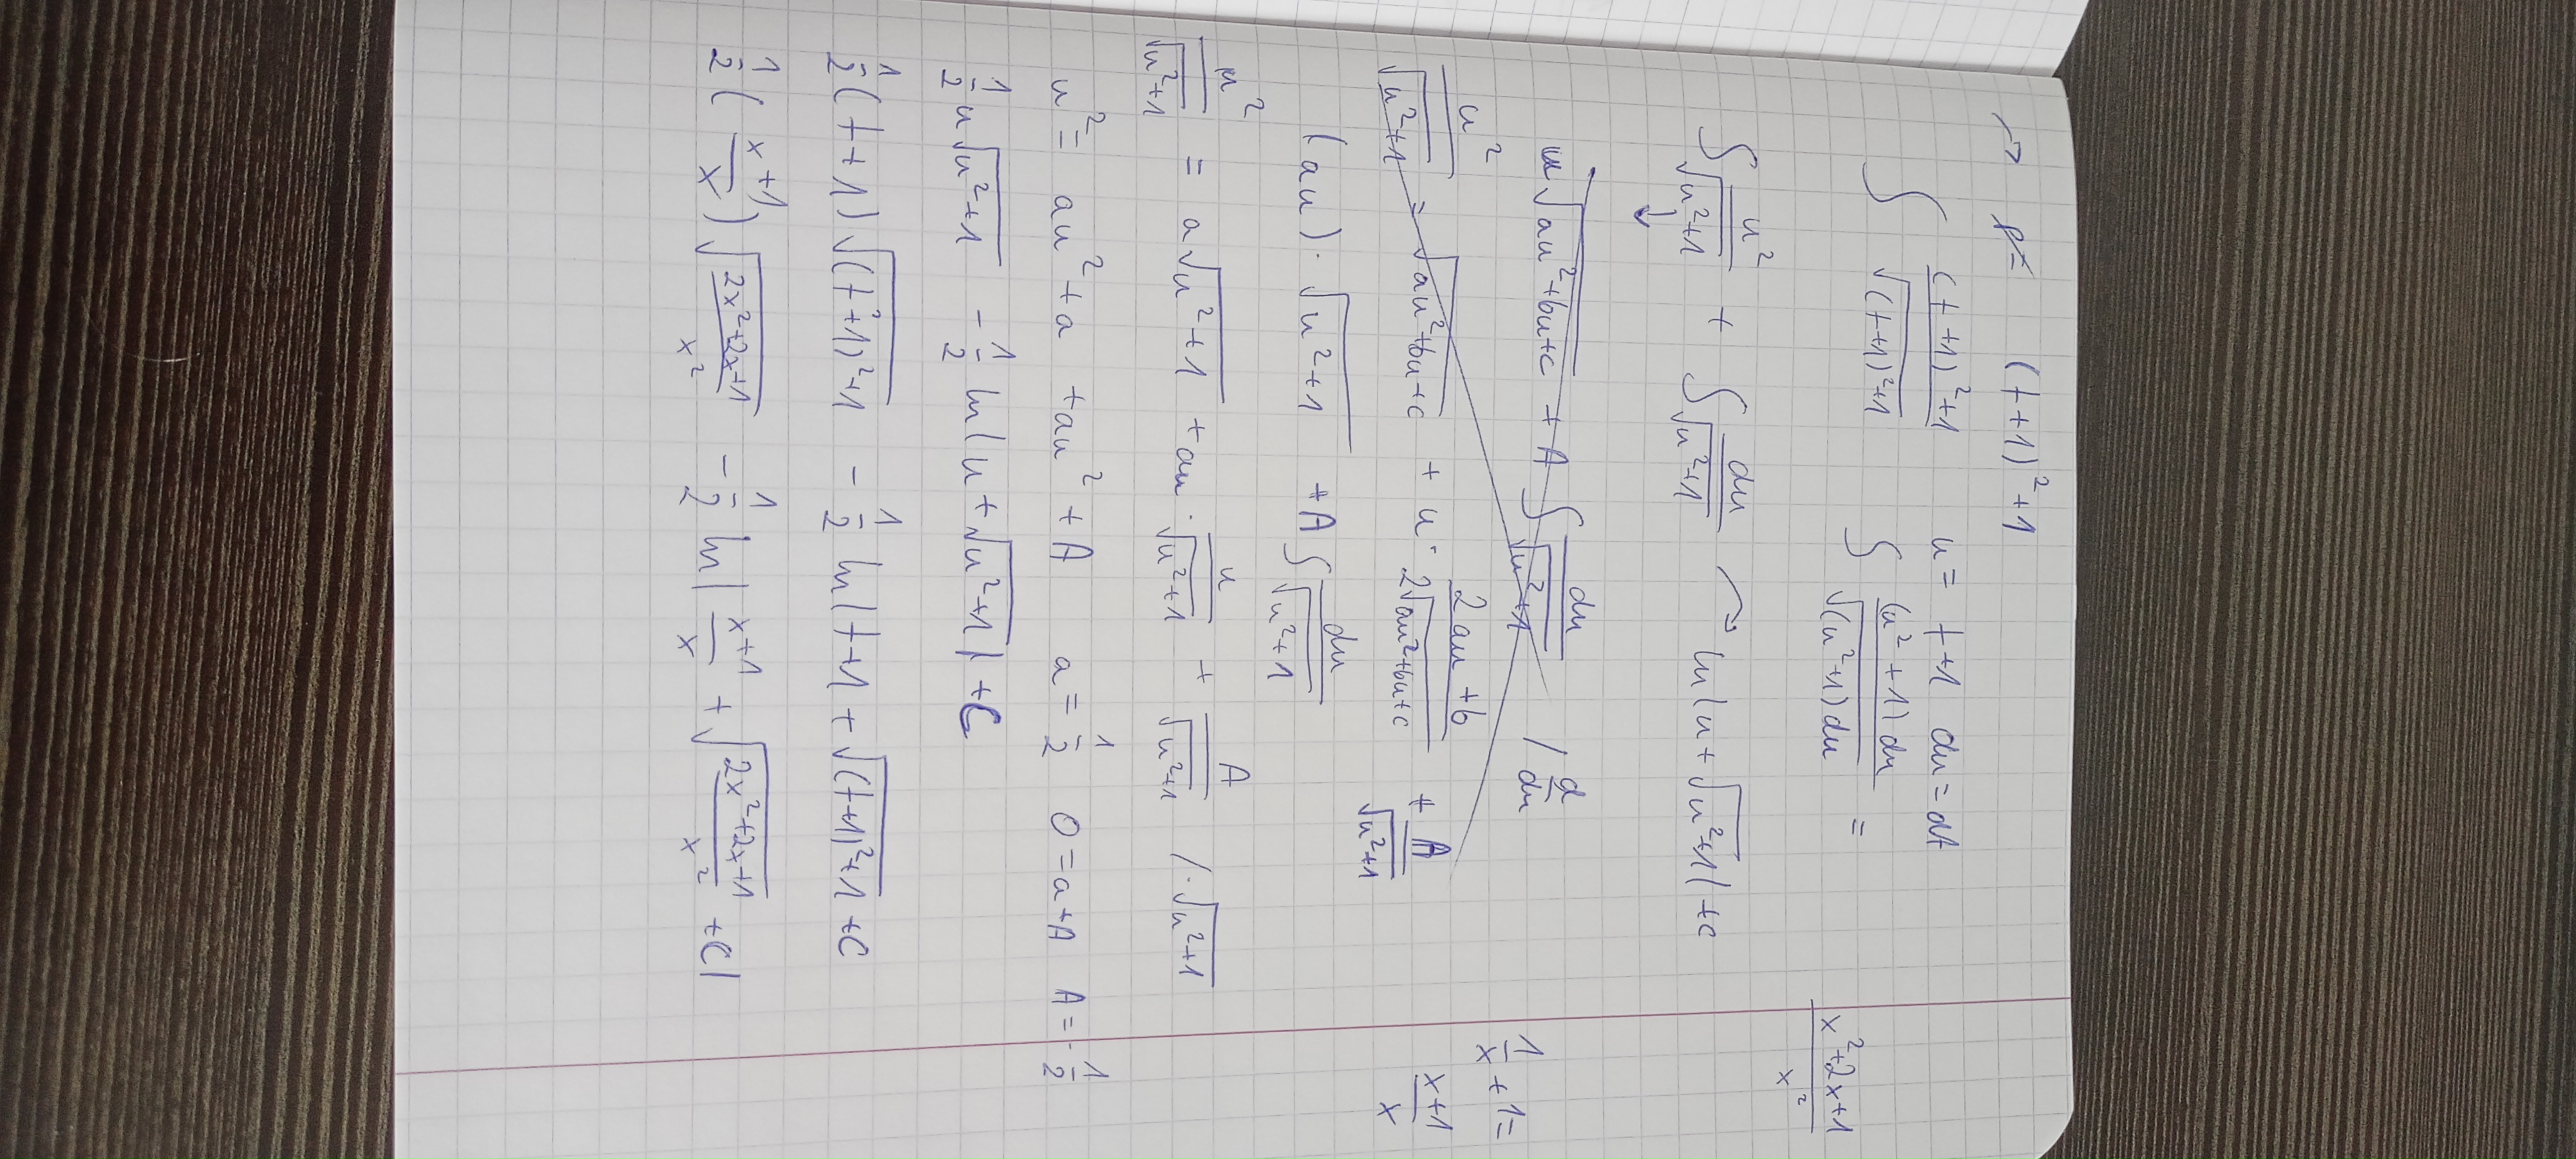 (t+1)²+1
∫ (t+1)²+1 / √(t+1)²+1   u = t+1   du = dt
∫ (u²+1)du / √(u²+1)du =
∫ u² / √u²+1 + ∫ du / √u²+1 ↷ ln|u+√u²+1|+c
↓
u√au²+bu+c + A ∫ du / √u²+1   / d/du
u² / √u²+1 = √au²+bu+c + u · 2au+b / 2√au²+bu+c + A / √u²+1
(au) · √u²+1 + A ∫ du / √u²+1
u² / √u²+1 = a√u²+1 + au · u / √u²+1 + A / √u²+1   / · √u²+1
u² = au²+a + au² + A   a = 1/2   0 = a+A   A = -1/2
1/2 u√u²+1 - 1/2 ln|u+√u²+1| +C
1/2 (t+1) √(t²+1)²+1 - 1/2 ln|t+1+√(t+1)²+1 +C
1/2 ( x+1 / x ) √ 2x²+2x+1 / x² - 1/2 ln| x+1 / x + √ 2x²+2x+1 / x² +C|
x²+2x+1 / x²
1/x + 1 =
x+1 / x